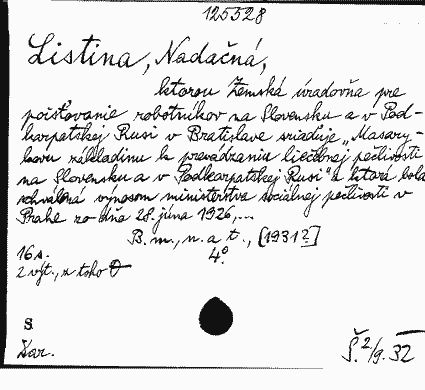 125528
Listina, Nadačná,
ktorou Zemská úradovňa pre
poisťovanie robotníkov na Slovensku a v Pod-
karpatskej Rusi v Bratislave sriaďuje „Masary-
kovu základinu k prevádzaniu liečebnej pečlivosti
na Slovensku a v Podkarpatskej Rusi" a ktorá bola
schválená výnosom ministerstva sociálnej pečlivosti v
Prahe zo dňa 28. júna 1926,...
B. m., n. a t., [1931?]
16 s. 4°
2 výt., z toho D
S
Dar.
Š. 2/9. 32